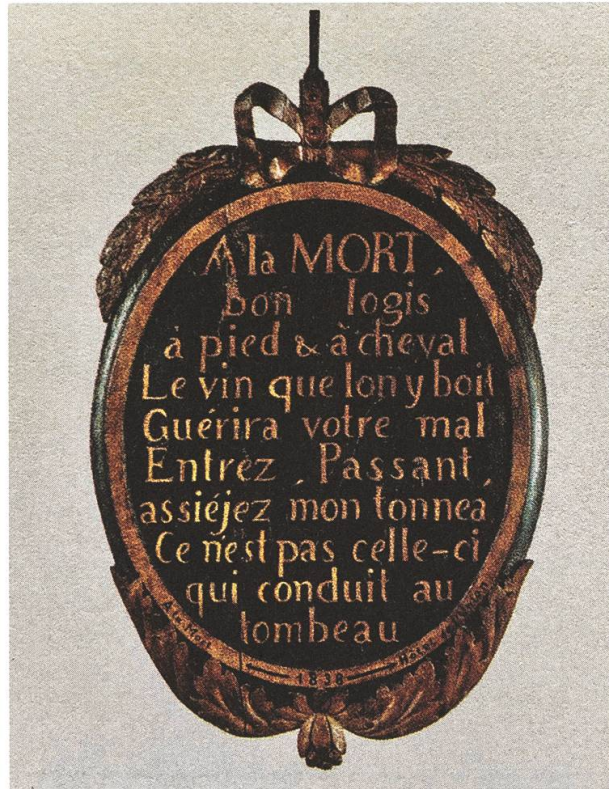 A la MORT,
bon logis
à pied & à cheval
Le vin que lon y boit
Guérira votre mal
Entrez, Passant,
assiéjez mon tonnea
Ce n'est pas celle-ci
qui conduit au
tombeau
A la Mort 1838